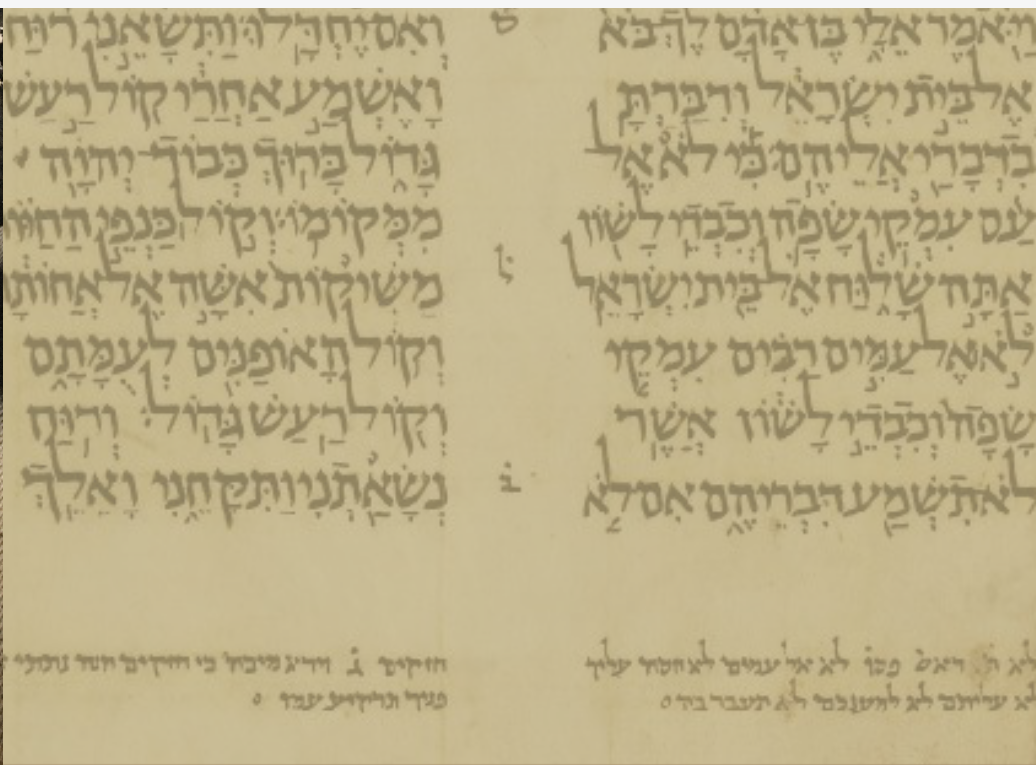 וַיֹּאמֶר אֵלָי בֶּן אָדָם לֶךְ בֹּא
אֶל בֵּית יִשְׂרָאֵל וְדִבַּרְתָּ
בִדְבָרַי אֲלֵיהֶם׃ כִּי לֹא אֶל
עַם עִמְקֵי שָׂפָה וְכִבְדֵי לָשׁוֹן
אַתָּה שָׁלוּחַ אֶל בֵּית יִשְׂרָאֵל
לֹא אֶל עַמִּים רַבִּים עִמְקֵי
שָׂפָה וְכִבְדֵי לָשׁוֹן אֲשֶׁר
לֹא תִשְׁמַע דִּבְרֵיהֶם אִם לֹא
לא ראש פסו לא אל עמים לא אחסה עליך
לא עליתם לא למענכם לא תעבר בה
ל
ב
וְאִם יֶחְדָּלוּ׃ וַתִּשָּׂאֵנִי רוּחַ
וָאֶשְׁמַע אַחֲרַי קוֹל רַעַשׁ
גָּדוֹל בָּרוּךְ כְּבוֹד יְהוָה
מִמְּקוֹמוֹ׃ וְקוֹל כַּנְפֵי הַחַיּוֹ
מַשִּׁיקוֹת אִשָּׁה אֶל אֲחוֹתָ
וְקוֹל הָאוֹפַנִּים לְעֻמָּתָם
וְקוֹל רַעַשׁ גָּדוֹל׃ וְרוּחַ
נְשָׂאַתְנִי וַתִּקָּחֵנִי וָאֵלֵךְ
חזקים ב כי חזקים הנה נתתי
פניך